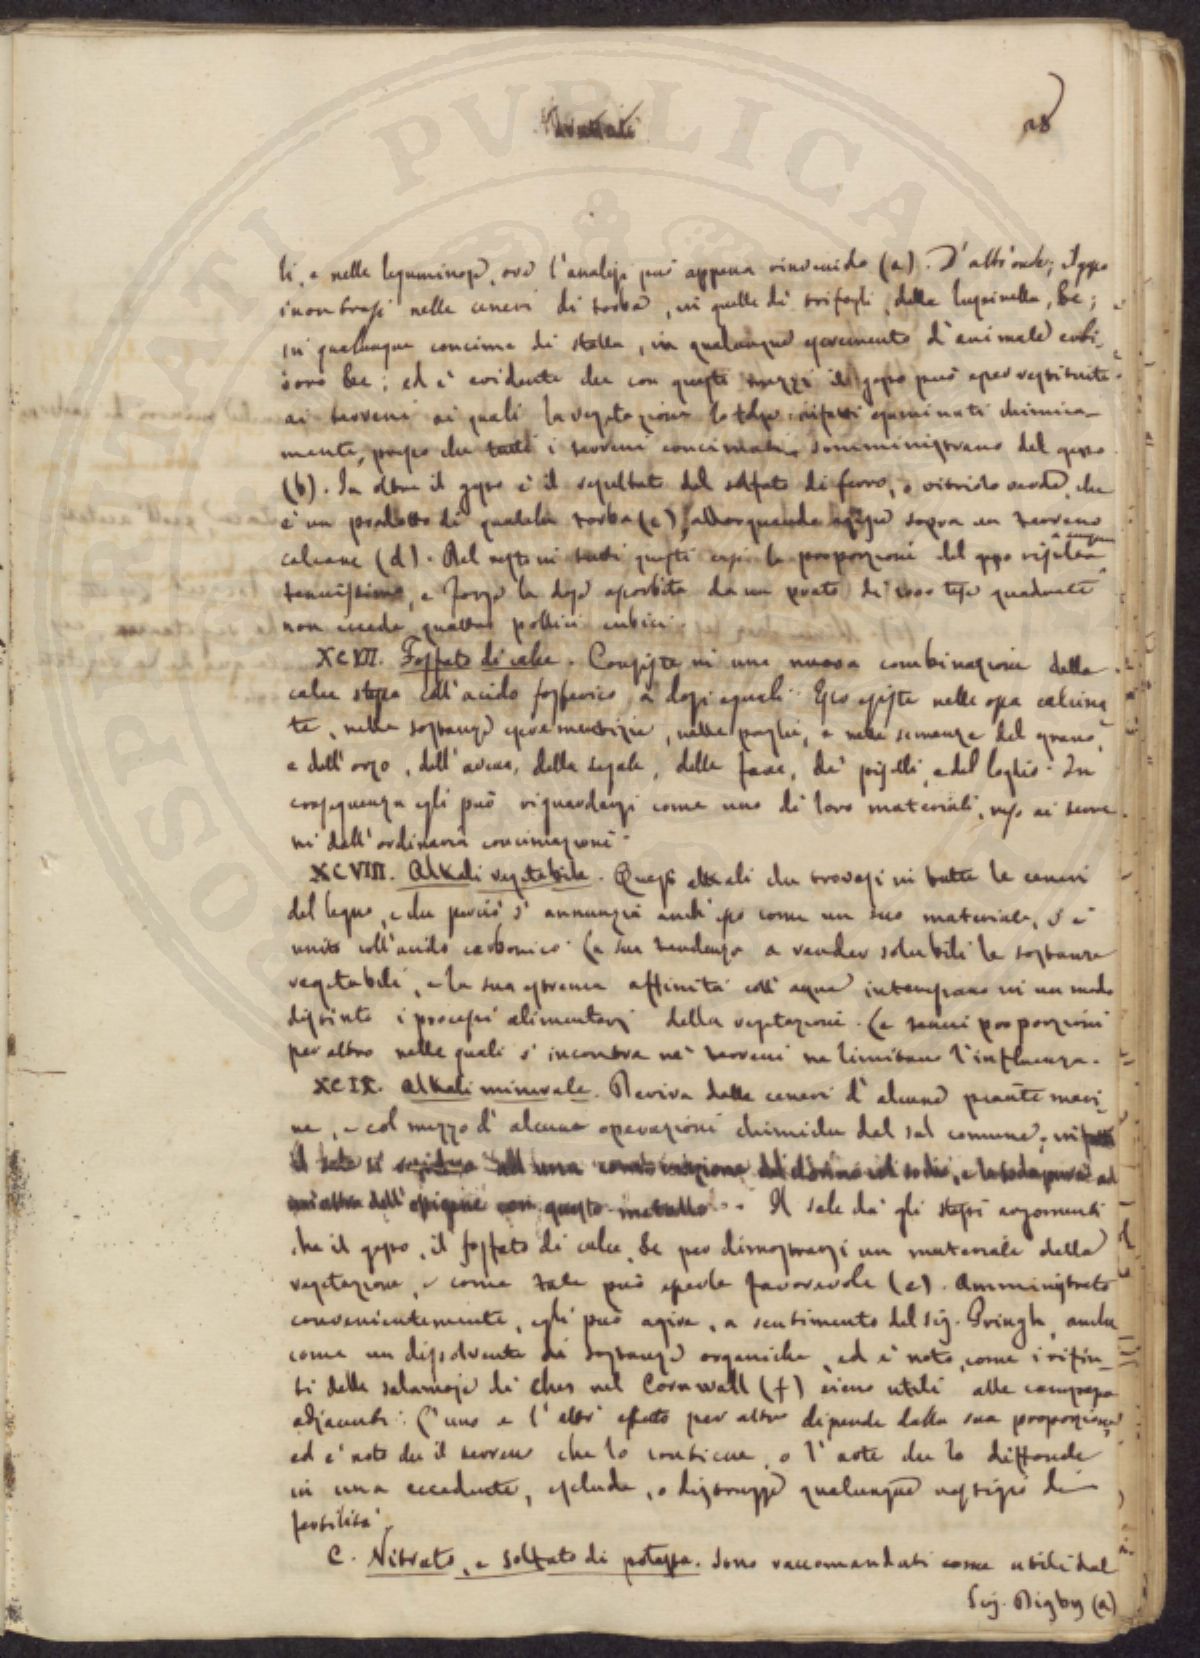 28
li, e nelle leguminose, ove l'analisi può appena rinvenirlo (a). D'altronde, Esso
incontrasi nelle ceneri di torba, in quelle di trifogli, della lupinella, &c;
in qualunque concime di stalla, in qualunque escremento d'animale erbi-
voro &c; ed è evidente che con questi mezzi il gesso può esser restituito
ai terreni ai quali la vegetazione lo tolse: infatti esaminati chimica-
mente, presso che tutti i terreni concimati somministrano del gesso
(b). In oltre il gesso è il resultato del solfato di ferro, o vitriolo verde, che
è un prodotto di qualche torba (c), allorquando agisce sopra un terreno
calcareo (d). Del resto in tutti questi casi le proporzioni del gesso
tenuissime, e forse la dose assorbita da un prato di tese quadrate
non eccede quattro pollici cubici.
XCVII. Fosfato di calce. Consiste in una nuova combinazione della
calce stessa coll'acido fosforico, a dosi eguali. Esso esiste nelle ossa calcina
te, nelle sostanze escrementizie, nelle paglie, e nelle semenze del grano,
e dell'orzo, dell'avena, della segale, delle fave, de' piselli, e del loglio. In
conseguenza egli può riguardarsi come uno di loro materiali, reso ai terre
ni dall'ordinaria concimazione.
XCVIII. Alkali vegetabile. Quest'alkali che trovasi in tutte le ceneri
del legno, e che perciò s'annunzia anch'esso come un suo materiale, s'è
unito coll'acido carbonico. La sua tendenza a render solubili le sostanze
vegetabili, e la sua estrema affinità coll'acqua interessano in un modo
distinto i processi alimentari della vegetazione. Le tenui proporzioni
per altro nelle quali s'incontra ne' terreni ne limitano l'influenza.
XCIX. Alkali minerale. Deriva dalle ceneri d'alcune piante mari-
ne, e col mezzo d'alcune operazioni chimiche dal sal comune;
Il sale dà gli stessi argomenti
che il gesso, il fosfato di calce &c per dimostrarsi un materiale della
vegetazione, e come tale può esserle favorevole (e). Amministrato
convenientemente, egli può agire, a sentimento del Sig. Pringle, anche
come un dissolvente di sostanze organiche, ed è noto, come i rifiu-
ti delle salamoje di nel Cornwall (f) sieno utili alle campagne
adjacenti. L'uno e l'altr'effetto per altro dipende dalla sua proporzione,
ed è noto che il terreno che lo contiene, o l'arte che lo diffonde
in una eccedente, esclude, o distrugge qualunque vestigio di
fertilità.
C. Nitrato, e solfato di potassa. Sono raccomandati come utili dal
Sig. Rigby (a)